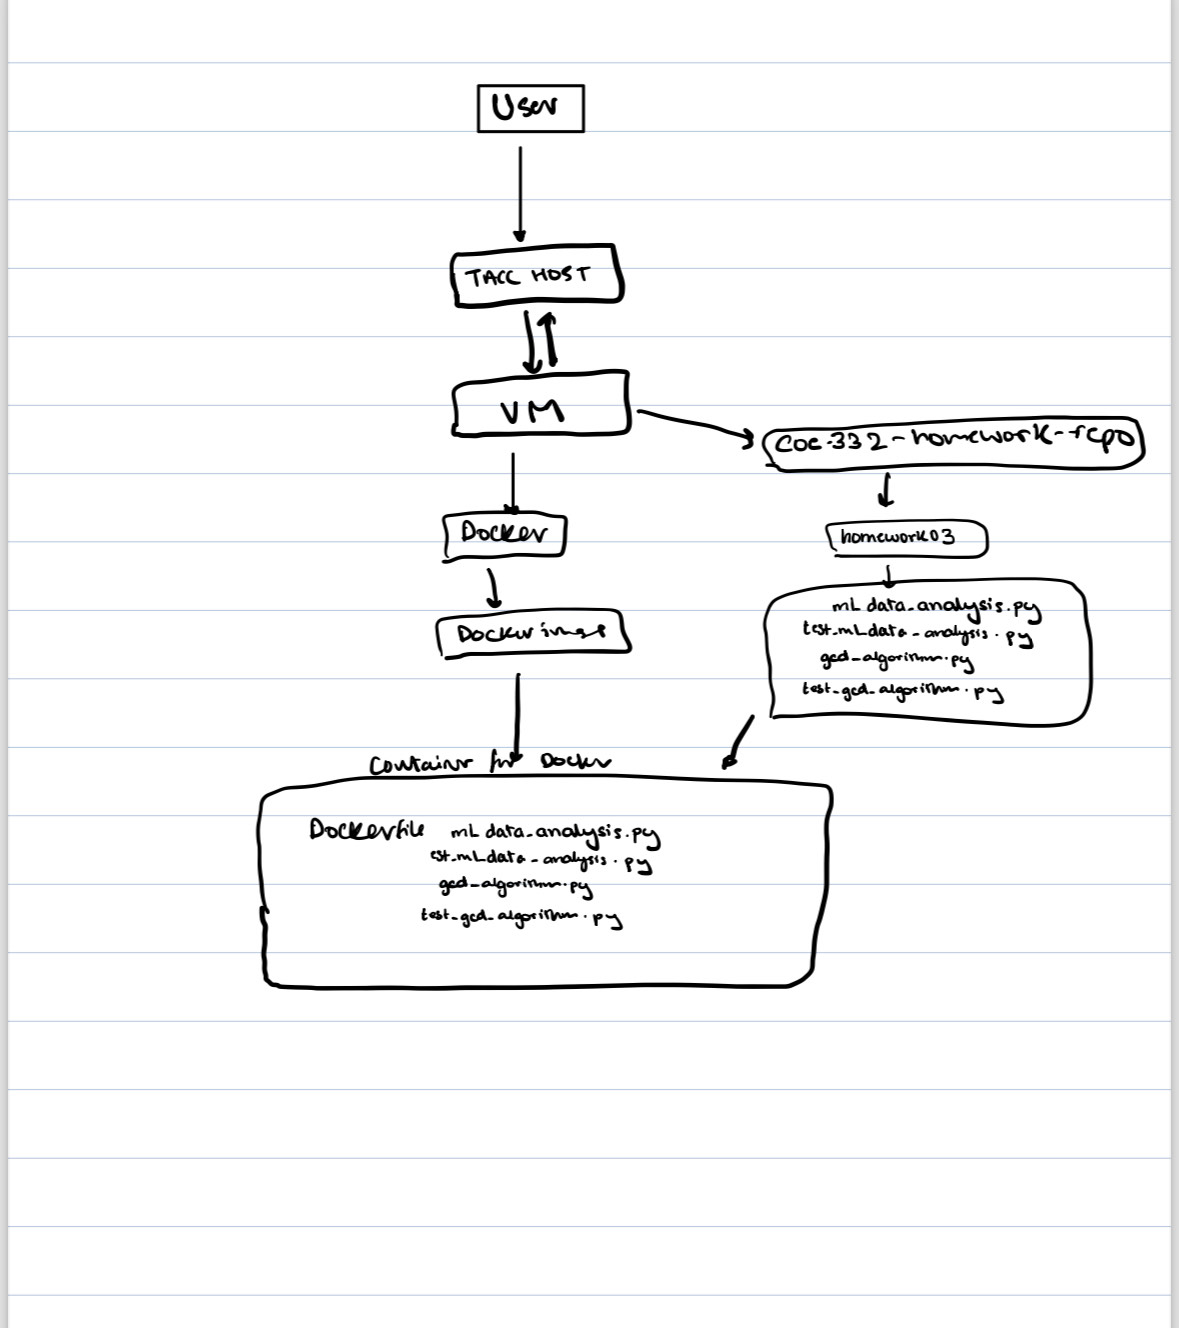 User
TACC HOST
VM
coe-332-homework-repo
Docker
homework03
Docker image
ml data_analysis.py
test_ml data_analysis.py
gcd_algorithm.py
test_gcd_algorithm.py
Container for Docker
Dockerfile ml data_analysis.py
est_ml data_analysis.py
gcd_algorithm.py
test_gcd_algorithm.py